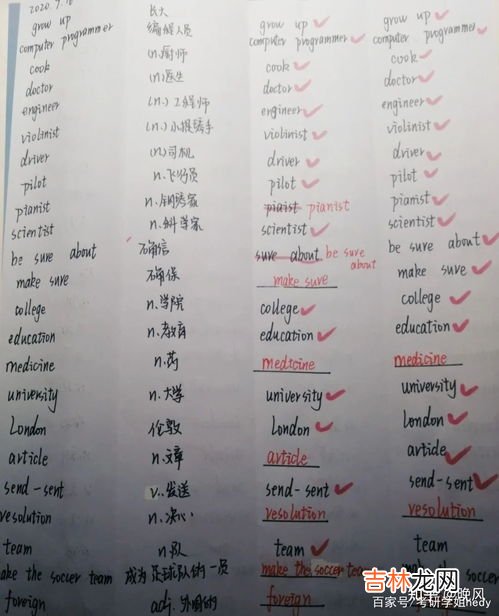 2020.9.16
grow up 长大 grow up grow up
computer programmer 编程人员 computer programmer computer programmer
cook (n.)厨师 cook cook
doctor (n.)医生 doctor doctor
engineer (n.)工程师 engineer engineer
violinist (n.)小提琴手 violinist violinist
driver (n)司机 driver driver
pilot n.飞行员 pilot pilot
pianist n.钢琴家 piaist pianist pianist
scientist n.科学家 scientist scientist
be sure about 确信 sure about be sure about be sure about
make sure 确保 make sure make sure
college n.学院 college college
education n.教育 education education
medicine n.药 medicine medicine
university n.大学 university university
London 伦敦 London London
article n.文章 article article
send-sent v.发送 send-sent send-sent
resolution n.决心 resolution resolution
team n队 team team
ake the soccer team 成为足球队的一员 make the soccer team soccer
foreign adj.外国的 foreign
吉林龙网